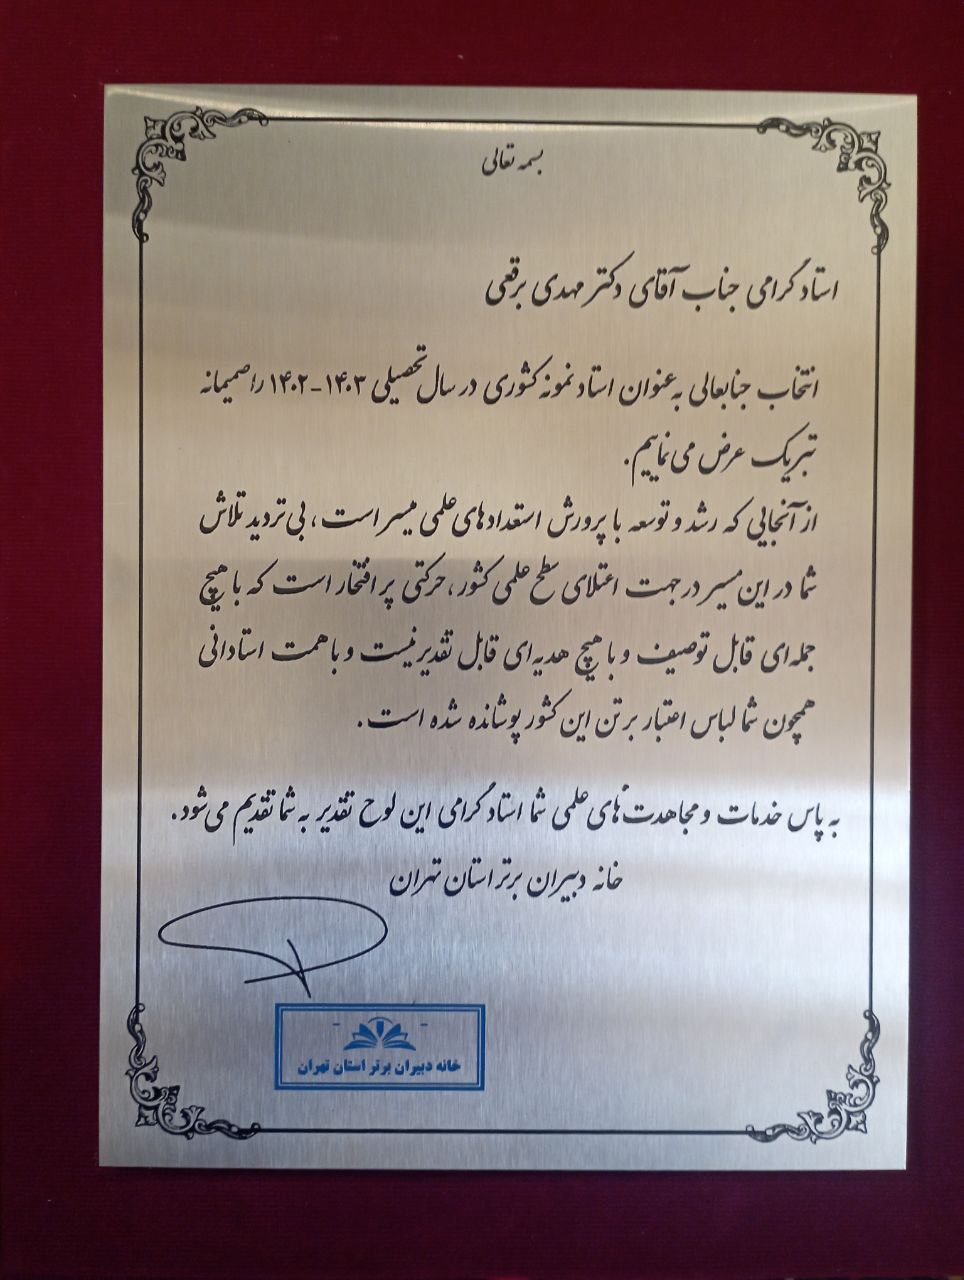 بسمه تعالی
استاد گرامی جناب آقای دکتر مهدی برقعی
انتخاب جنابعالی به عنوان استاد نمونه کشوری در سال تحصیلی ۱۴۰۳-۱۴۰۲ را صمیمانه
تبریک عرض می نماییم.
از آنجایی که رشد و توسعه با پرورش استعدادهای علمی میسر است، بی تردید تلاش
شما در این مسیر در جهت اعتلای سطح علمی کشور، حرکتی پر افتخار است که با هیچ
جمله ای قابل توصیف و با هیچ هدیه ای قابل تقدیر نیست و با همت استادانی
همچون شما لباس اعتبار بر تن این کشور پوشانده شده است.
به پاس خدمات و مجاهدت های علمی شما استاد گرامی این لوح تقدیر به شما تقدیم می شود.
خانه دبیران برتر استان تهران
خانه دبیران برتر استان تهران